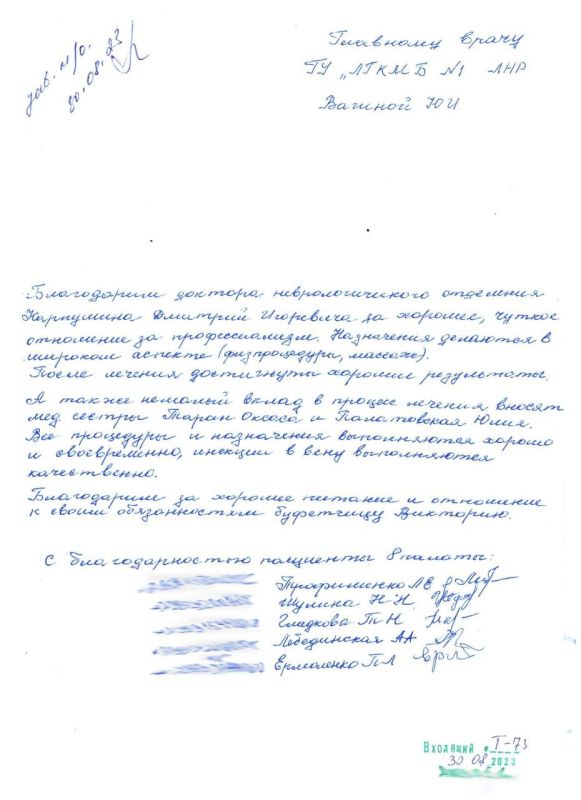 зав. н/о.
30.08.23
Главному врачу
ГУ „ЛГКМБ №1 ЛНР
Вагиной ЮИ
Благодарим доктора неврологического отделения
Карпушина Дмитрий Игоревича за хорошее, чуткое
отношение за профессиализм. Назначения делаются в
широком аспекте (физпроцедуры, массаж).
После лечения достигнуты хорошии результаты.
А также немалый вклад в процес лечения вносят
мед. сестры Таран Оксоса и Палатовская Юлия.
Все процедуры и назначения выполняются хорошо
и своевременно, инекции в вену выполняются
качественно.
Благодарим за хорошее питание и отношение
к своим обязанностям буфетчицу Викторию.
С благодарностью пациенты 8 палаты:
ЛЕ
Шулина Н Н
Гладкова Т Н
Лебединская АА
Ермоленко П Л
Входящий № Т-73
30 08 2023